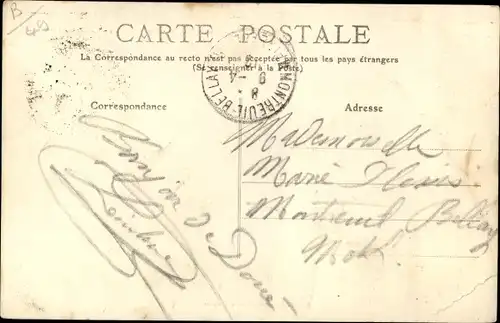 B
49
CARTE POSTALE
La Correspondance au recto n'est pas acceptée par tous les pays étrangers
(Se renseigner à la Poste)
MONTREUIL-BELLAY
9 - 4
8
Correspondance
Adresse
Mademoiselle
Marie
Montreuil Bellay
Bonjour
de Doué